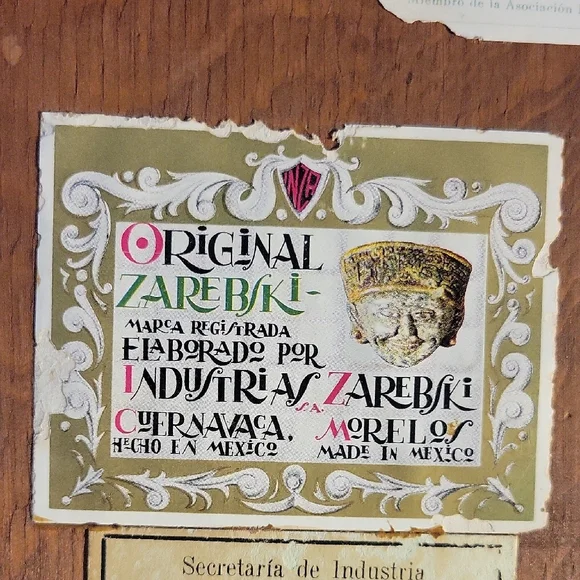 Miembro de la Asociación
NZA
ORIGINAL
ZAREBSKI-
MARCA REGISTRADA
ELABORADO POR
INDUSTRIAS S.A. ZAREBSKI
CUERNAVACA, MORELOS
HECHO EN MEXICO MADE IN MEXICO
Secretaría de Industria